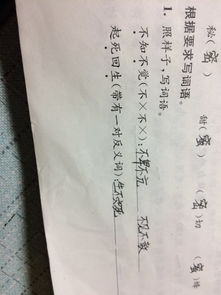 秘(蜜) 甜(蜜) (密)切 (蜜)蜂
根据要求写词语。
1. 照样子,写词语。
不知不觉(不×不×):不卑不亢 不见不散
起死回生(带有一对反义词):生不如死